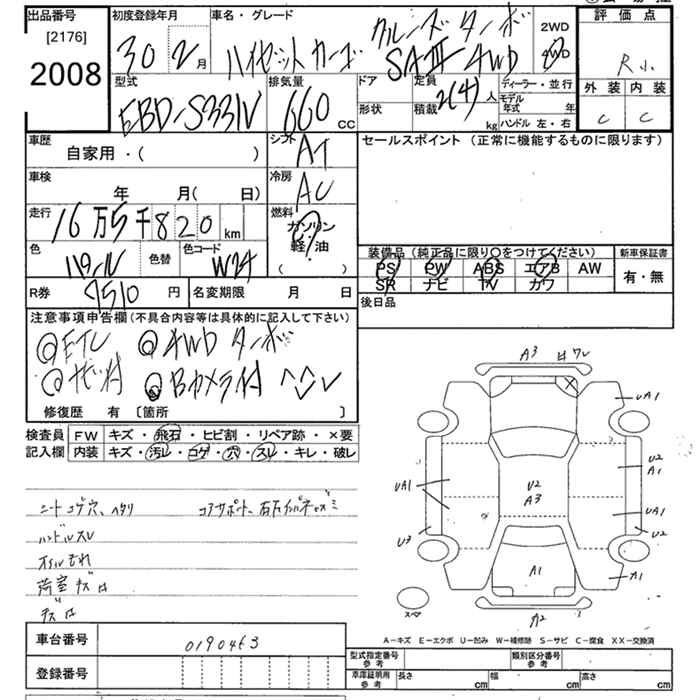 出品番号
[2176]
2008
初度登録年月
30年2月
車名・グレード
ハイゼットカーゴ クルーズターボ
SAⅢ 4WD
2WD
4WD
評価点
R小
外装 内装
C C
型式
EBD-S331V
排気量
660 CC
ドア
形状
定員
2(4)人
積載 kg
ディーラー・並行
モデル年式 年
ハンドル 左・右
車歴
自家用・( )
シフト
AT
セールスポイント (正常に機能するものに限ります)
車検
年 月( 日)
冷房
AC
走行
16万5千820km
燃料
ガソリン
軽・油
( )
色
パール
色替
色コード
W24
装備品(純正品に限り○をつけてください)
新車保証書
PS PW ABS エアB AW
SR ナビ TV カワ
有・無
R券
7510円
名変期限 月 日
後日品
注意事項申告欄(不具合内容等は具体的に記入して下さい)
◎ETC ◎4WD ターボ
Bカメラ付
修復歴 有 〔箇所 〕
検査員記入欄
FW キズ・飛石・ヒビ割・リペア跡・×要
内装 キズ・汚レ・コゲ・穴・スレ・キレ・破レ
シートコゲ穴、ヘタリ
コアサポート、右左インパネキズミ
ハンドルスレ
オイルもれ
荷室キズ凹
キズ凹
A3
UA1
U2
A1
UA1
U2
A3
U3
UA1
U2
A1
A1
スペア
A2
A-キズ E-エクボ U-凹み W-補修跡 S-サビ C-腐食 XX-交換済
車台番号
0190463
登録番号
型式指定番号 参考
類別区分番号 参考
車庫証明用 参考
長さ cm
幅 cm
高さ cm